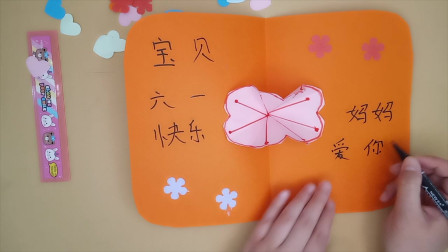 宝贝
六一
快乐
妈妈
爱你